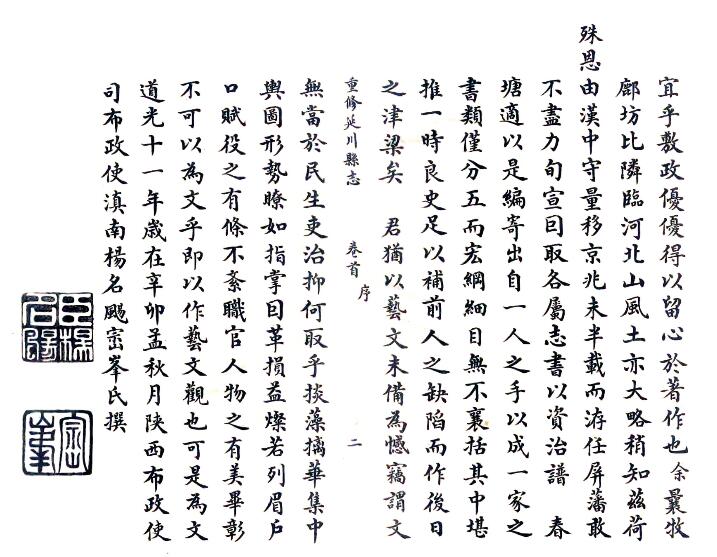 宜乎敷政優優得以留心於著作也余曩牧
鄜坊比隣臨河北山風土亦大略稍知茲荷
殊恩由漢中守量移京兆未半載而洊任屏藩敢
不盡力旬宣囙取各屬志書以資治譜 春
塘適以是編寄出自一人之手以成一家之
書類僅分五而宏綱細目無不襄括其中堪
推一時良史足以補前人之缺陷而作後日
之津梁矣 君猶以藝文未備為憾竊謂文
重修延川縣志 卷首 序 二
無當於民生吏治抑何取乎掞藻摛華集中
輿圖形勢瞭如指掌囙革損益燦若列眉戶
口賦役之有條不紊職官人物之有美畢彰
不可以為文乎即以作藝文觀也可是為文
道光十一年歲在辛卯孟秋月陝西布政使
司布政使滇南楊名颺崇峯氏撰
臣楊名颺
崇峯